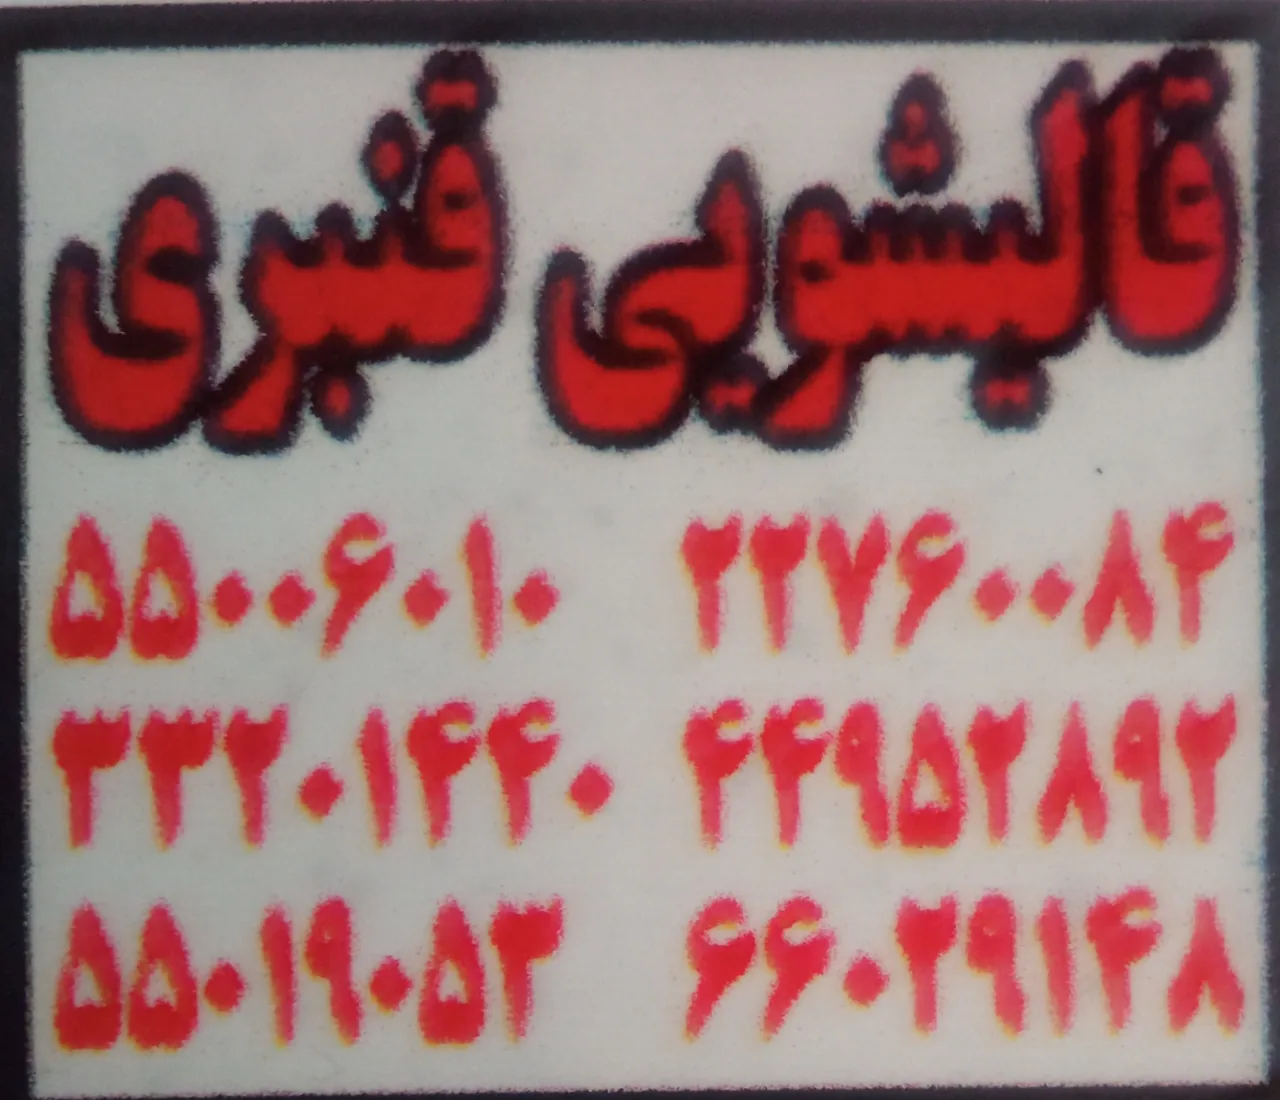 قالیشویی قنبری
۲۲۷۶۰۰۸۴ ۵۵۰۰۶۰۱۰
۴۴۹۵۲۸۹۲ ۳۳۲۰۱۴۴۰
۶۶۰۲۹۱۴۸ ۵۵۰۱۹۰۵۳